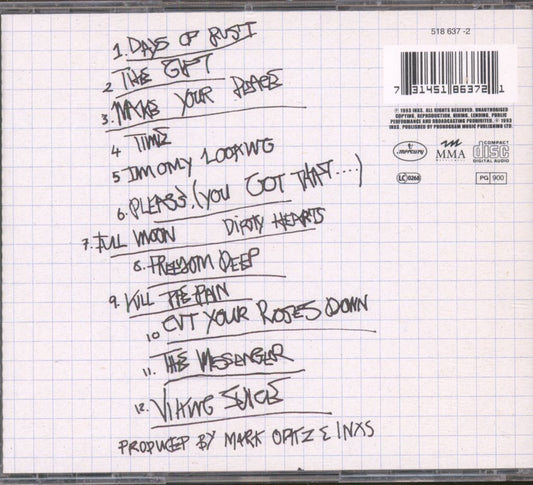 518 637 -2
7 31451 86372 1
℗ 1993 INXS. ALL RIGHTS RESERVED. UNAUTHORISED
COPYING, REPRODUCTION, HIRING, LENDING, PUBLIC
PERFORMANCE AND BROADCASTING PROHIBITED. © 1993
INXS. PUBLISHED BY PHONOGRAM MUSIC PUBLISHING LTD.
mercury
MMA
COMPACT
disc
DIGITAL AUDIO
LC 0268
PG 900
1. DAYS OF RUST
2 THE GIFT
3. MAKE YOUR PEACE
4 TIME
5 IM ONLY LOOKING
6. PLEASE. (YOU GOT THAT....)
7. FULL MOON DIRTY HEARTS
8. FREEDOM DEEP
9. KILL THE PAIN
10 CUT YOUR ROSES DOWN
11. THE MESSENGER
12. VIKING JUICE
PRODUCED BY MARK OPITZ & INXS